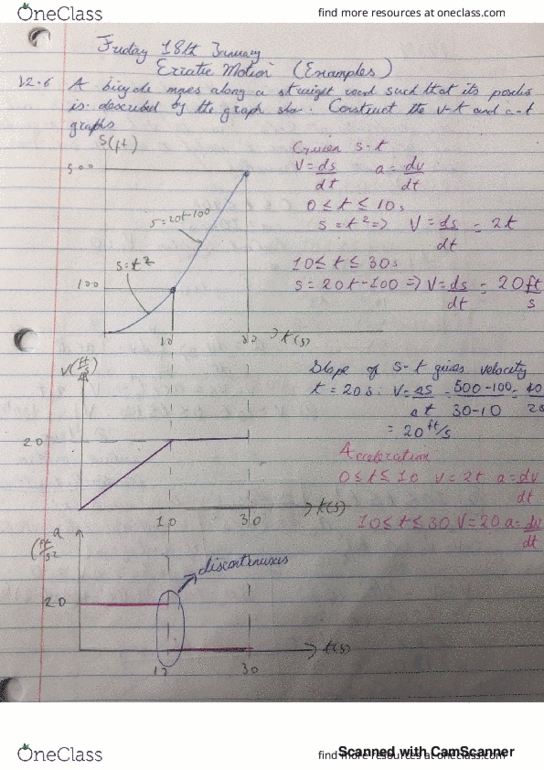 OneClass
find more resources at oneclass.com
Friday 18th January
Erratic Motion (Examples)
12.6 A bicycle moves along a straight road such that its
is described by the graph Construct the v-t and a-t
graphs
S(ft)
500
100
s=20t-100
s=t²
10
30
t(s)
Given s-t
V=ds/dt a=dv/dt
0≤t≤10s
s=t² => V=ds/dt=2t
10≤t≤30s
s=20t-100 => V=ds/dt=20ft/s
V(ft/s)
20
10
30
t(s)
Slope of s-t gives velocity
t=20s: V=ΔS/Δt=500-100/30-10
=20ft/s
Acceleration
0≤t≤10 V=2t a=dv/dt
10≤t≤30 V=20 a=dv/dt
a
(ft/s2
20
discontinuous
30
t(s)
OneClass
find more resources at oneclass.com
Scanned with CamScanner